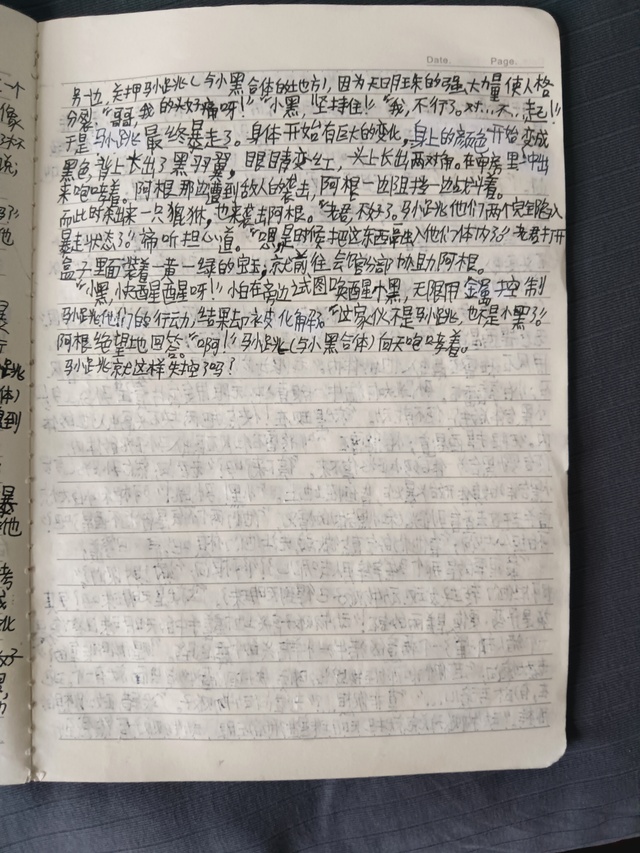 Date. Page.
另一边,关押马小跳(与小黑合体的地方),因为天明珠的强大力量使人格
分裂“哥哥,我的头好痛呀!”“小黑,坚持住!”“我,不行了。对…不…起!”
于是马小跳最终暴走了。身体开始有巨大的变化,身上的颜色开始变成
黑色,背上长出了黑羽翼,眼睛变红,头上长出两对角。在牢房里冲出
来咆哮着。阿根那边遭到敌人的袭击,阿根一边阻挡一边战斗着。
而此时来出来一只猩猴,也来袭击阿根。“老君,不好了。马小跳他们两个完全陷入
暴走状态了。”谛听担心道。“嗯,是时候把这东西融入他们体内了。”老君打开
盒子里面装着一黄一绿的宝玉,就前往会馆分部协助阿根。
“小黑,快醒醒呀!”小白在旁边试图唤醒小黑,无限用金属控制
马小跳他们的行动,结果却被化解了。“这家伙不是马小跳,也不是小黑了。”
阿根绝望地回答。“啊!”马小跳(与小黑合体)向天咆哮着。
马小跳就这样失控了吗?
一个
像
说;
他
跳
体)
到
暴
他
考
北